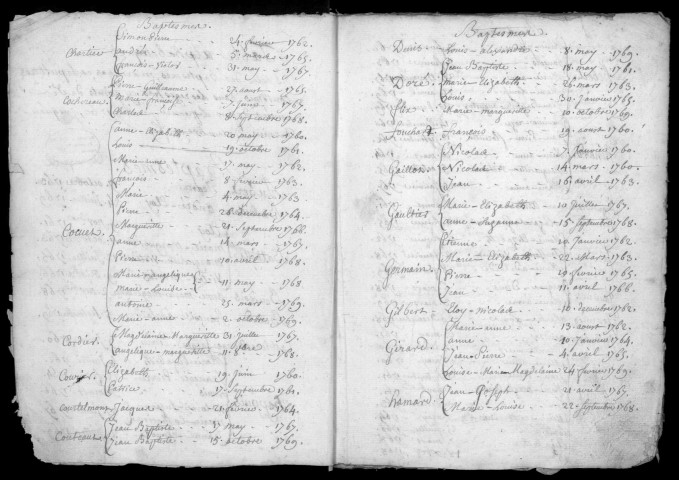 Baptesmes
Simon Pierre 24 fevrier 1762.
Chartier andré 5 mars 1765.
31 may 1767.
Pierre Guillaume 27 aoust 1765.
Cochereau 7 juin 1767.
Charles 8 Septembre 1768.
anne Elizabeth 20 may 1760.
Louis 19 octobre 1761.
Marie anne 17 may 1762.
françois 8 fevrier 1763.
Marie 4 may 1763.
Pierre 26 decembre 1764.
Marguerite 21 Septembre 1766.
anne 14 mars 1767.
Pierre 10 avril 1768.
Marie angelique
marie Louise 11 may 1768
antoine 25 mars 1769.
Marie anne 2 octobre 1769.
Cordier Magdelaine Marguerite 31 juillet 1767.
angelique marguerite 1768.
Elizabeth 19 juin 1760.
Patrice 17 Septembre 1761.
Courtelmont Jacques 21 fevrier 1764.
Jean Baptiste 17 may 1767.
Couteaux Jean Baptiste 15 octobre 1769.
Baptesmes
Denis Louis alexandre 8 may 1769.
Jean Baptiste 18 may 1761.
Doré marie Elizabeth 26 mars 1763.
Louis 30 Janvier 1765.
Marie marguerite 10 octobre 1769.
françois 19 aoust 1760.
Nicolas 7 Janvier 1760.
Gaillon Nicolas 14 mars 1760.
Jean 16 avril 1763.
Marie Elizabeth 10 Juillet 1767.
Gaultier anne Suzanne 15 Septembre 1768.
Etienne 10 Janvier 1762.
Marie Elizabeth 22 Mars 1763.
Germain Pierre 19 fevrier 1765.
Jean 11 avril 1766.
Gilbert Eloy nicolas 10 decembre 1762.
Marie anne 13 aoust 1762.
anne 10 Janvier 1764.
Girard Jean Pierre 4 avril 1765.
Louise Marie Magdelaine 24 fevrier 1769.
Jean Joseph 21 avril 1767.
hamard Marie Louise 22 Septembre 1768.